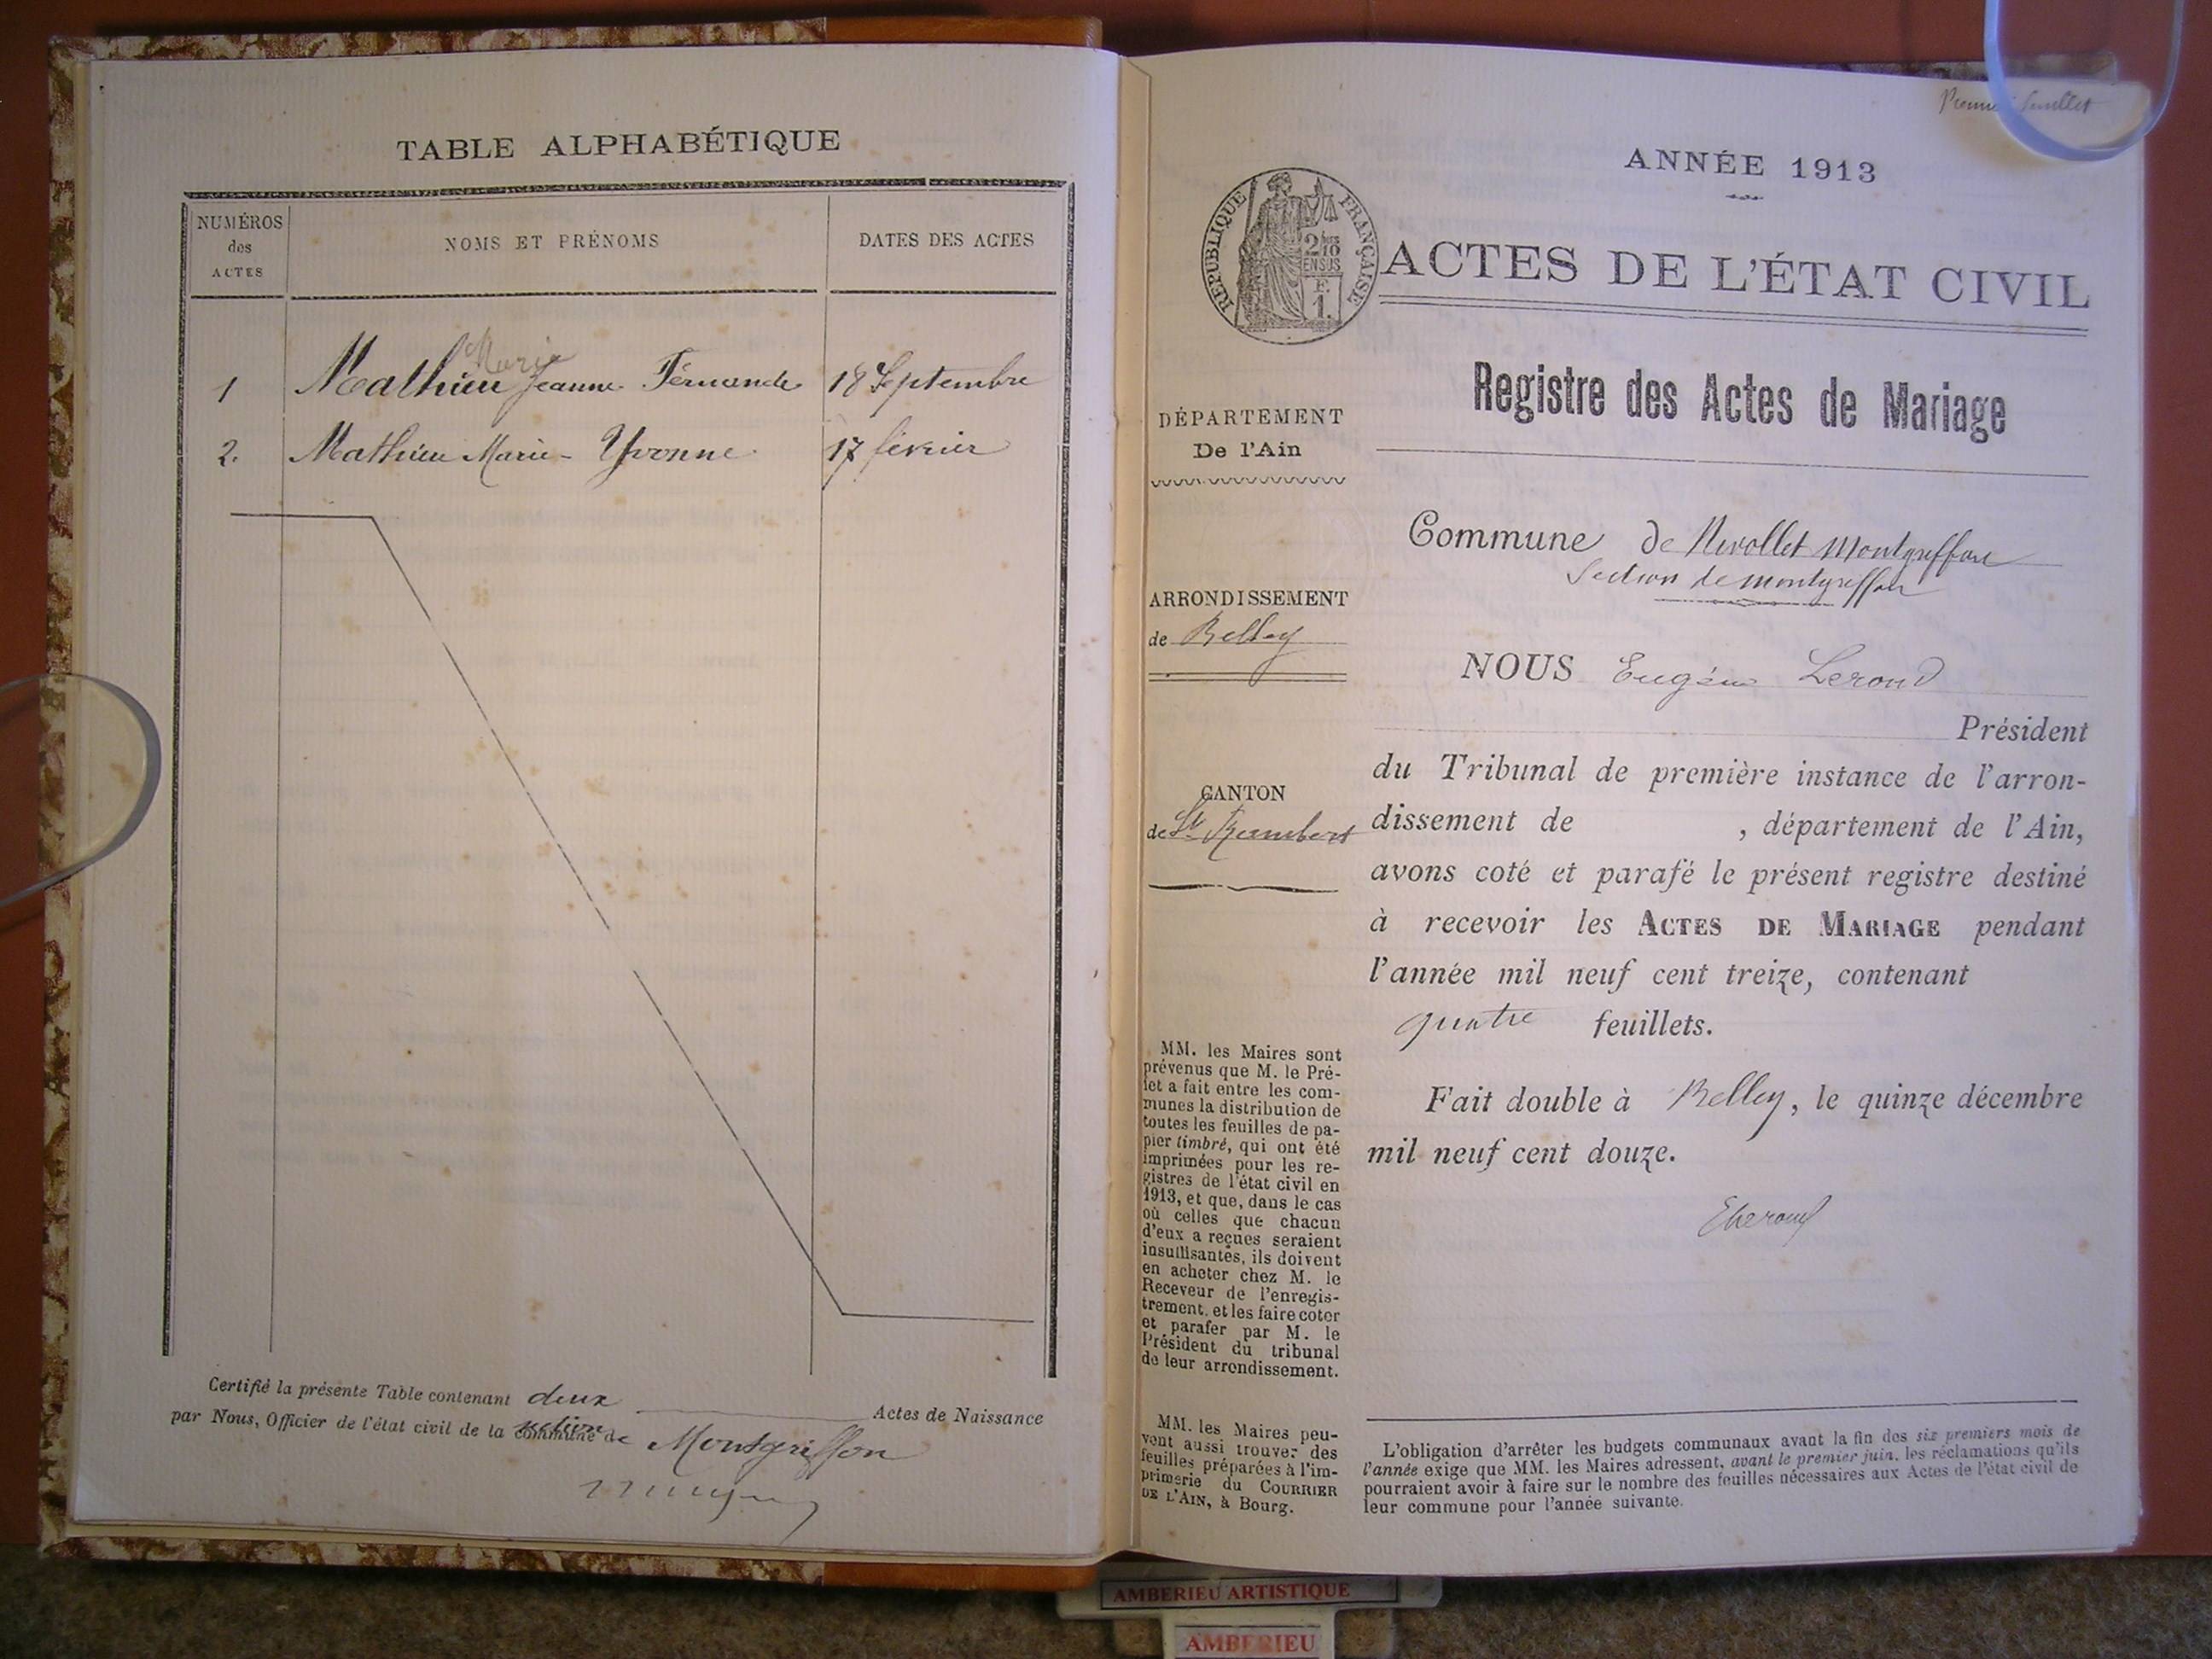 TABLE ALPHABÉTIQUE
NUMÉROS
des
ACTES
NOMS ET PRÉNOMS
DATES DES ACTES
Marie
1 Mathieu Jeanne Fernande 18 Septembre
2. Mathieu Marie-Yvonne 17 février
Certifié la présente Table contenant deux Actes de Naissance
section
par Nous, Officier de l'état civil de la commune de Montgriffon
Premier feuillet
ANNÉE 1913
RÉPUBLIQUE FRANÇAISE
2/10
EN SUS
F.
1.
ACTES DE L'ÉTAT CIVIL
Registre des Actes de Mariage
DÉPARTEMENT
De l'Ain
ARRONDISSEMENT
de Belley
CANTON
de St Rambert
MM. les Maires sont
prévenus que M. le Pré-
fet a fait entre les com-
munes la distribution de
toutes les feuilles de pa-
pier timbré, qui ont été
imprimées pour les re-
gistres de l'état civil en
1913, et que, dans le cas
où celles que chacun
d'eux a reçues seraient
insuffisantes, ils doivent
en acheter chez M. le
Receveur de l'enregis-
trement, et les faire coter
et parafer par M. le
Président du tribunal
de leur arrondissement.
MM. les Maires peu-
vent aussi trouver des
feuilles préparées à l'im-
primerie du COURRIER
DE L'AIN, à Bourg.
Commune de Nivollet Montgriffon
Section de Montgriffon
NOUS Eugène Leroud
Président
du Tribunal de première instance de l'arron-
dissement de , département de l'Ain,
avons coté et parafé le présent registre destiné
à recevoir les ACTES DE MARIAGE pendant
l'année mil neuf cent treize, contenant
quatre feuillets.
Fait double à Belley, le quinze décembre
mil neuf cent douze.
L'obligation d'arrêter les budgets communaux avant la fin des six premiers mois de
l'année exige que MM. les Maires adressent, avant le premier juin, les réclamations qu'ils
pourraient avoir à faire sur le nombre des feuilles nécessaires aux Actes de l'état civil de
leur commune pour l'année suivante.
AMBERIEU ARTISTIQUE
AMBERIEU